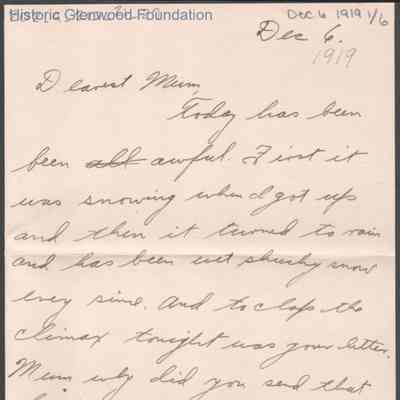 Historic Glenwood Foundation
Dec 6 1919 1/6
Dec 6.
1919
Dearest Mum,
Today has been
been all awful. First it
was snowing when I got up
and then it turned to rain
and has been wet slushy snow
ever since. And to clap the
climax tonight was your letter.
Mum why did you send that